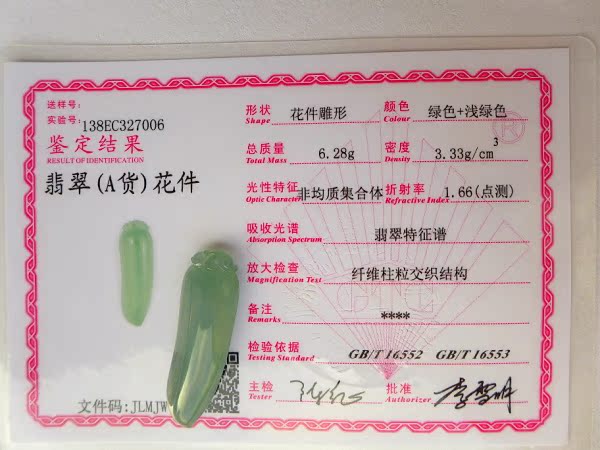 送样号:
实验号: 138EC327006
鉴定结果
RESULT OF IDENTIFICATION
翡翠(A货)花件
形状 花件雕形 颜色 绿色+浅绿色
Shape Colour
总质量 6.28g 密度 3.33g/cm3
Total Mass Density
光性特征 非均质集合体 折射率 1.66(点测)
Optic Character Refractive Index
吸收光谱 翡翠特征谱
Absorption Spectrum
放大检查 纤维柱粒交织结构
Magnification Text
备注 ****
Remarks
检验依据 GB/T 16552 GB/T 16553
Testing Standard
主检 批准
Tester Authorizer
文件码:JLMJW